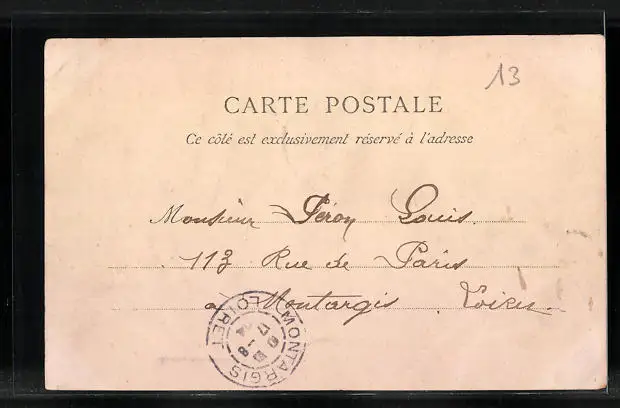 13
CARTE POSTALE
Ce côté est exclusivement réservé à l'adresse
Monsieur Féron Louis
113 Rue de Paris
a Montargis Loiret
MONTARGIS
LOIRET